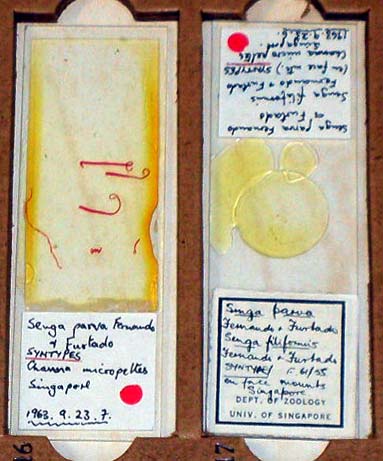 Senga parva Fernando
& Furtado
SYNTYPES
Channa micropeltes
Singapore
1963.9.23.7.
Senga parva Fernando
& Furtado
Senga filiformis
Fernando & Furtado
(en face mts.) SYNTYPES
Channa micropeltes
Singapore.
1963.9.23.6.
Senga parva
Fernando & Furtado
Senga filiformis
Fernando & Furtado
SYNTYPES
en face mounts
Singapore
DEPT. OF ZOOLOGY
UNIV. OF SINGAPORE
16
17